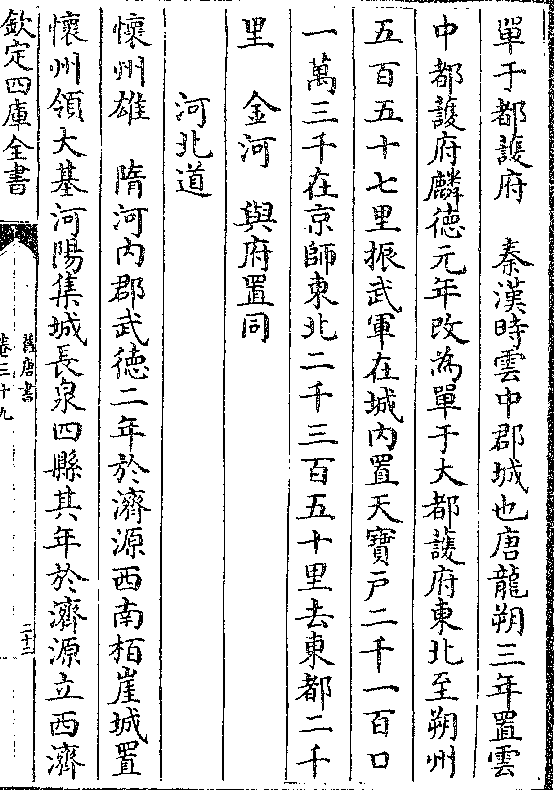 單于都護府　秦漢時雲中郡城也唐龍朔三年置雲
中都護府麟德元年改為單于大都護府東北至朔州
五百五十七里振武軍在城內置天寶戶二千一百口
一萬三千在京師東北二千三百五十里去東都二千
里　金河　與府置同
河北道
懷州雄　隋河內郡武德二年於濟源西南栢崖城置
懷州領大基河陽集城長泉四縣其年於濟源立西濟
欽定四庫全書
舊唐書
卷三十九
二十二